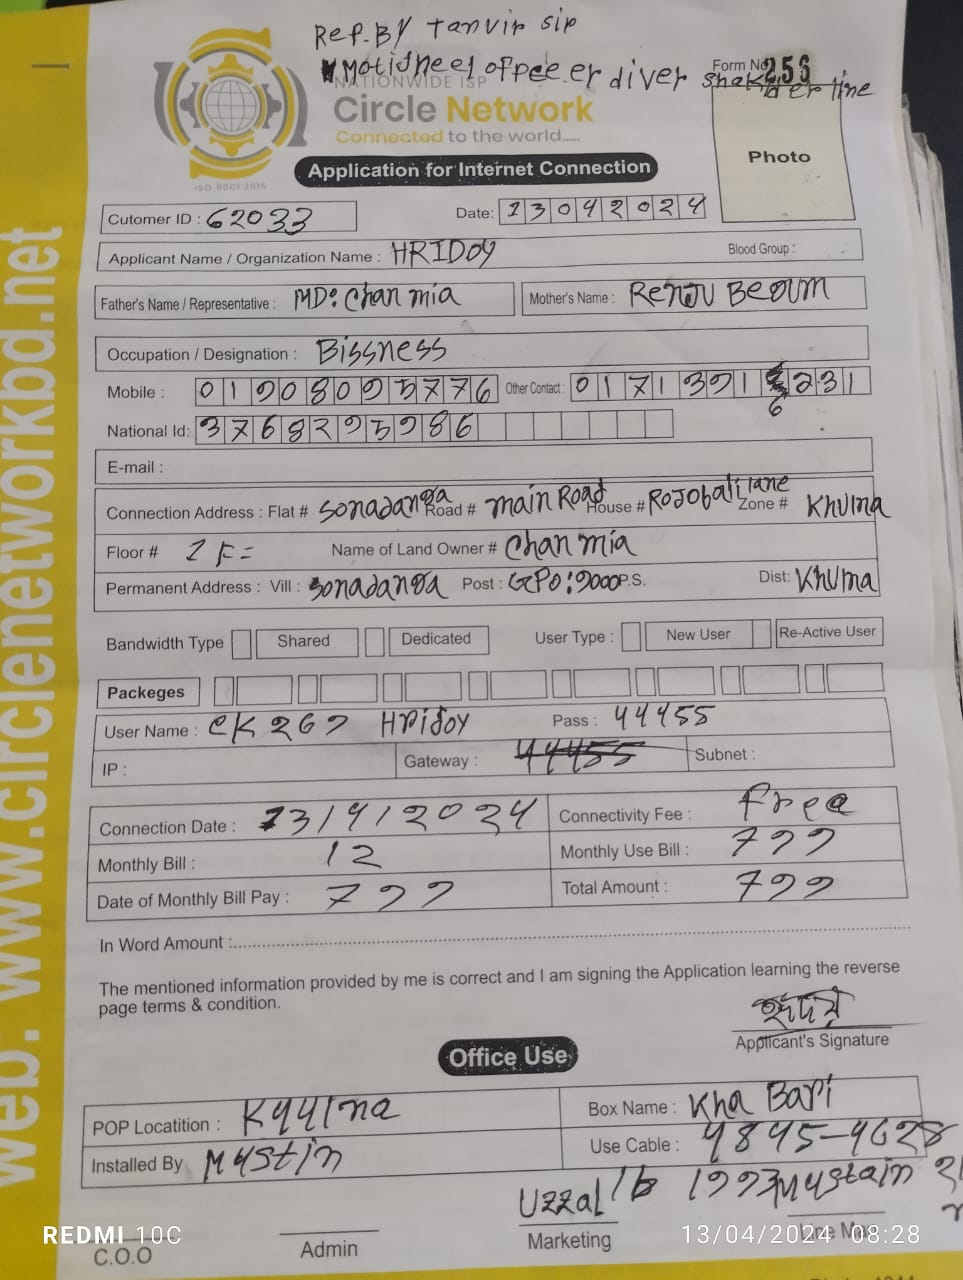 Ref. By tanvir sir
Motisheel ofpee.er diver
Form No 256
NATIONWIDE ISP
Circle Network
Connected to the world.....
ISO 9001:2015
Application for Internet Connection
Photo
Cutomer ID : 62033
Date: 13042024
Applicant Name / Organization Name : HRIDOY
Blood Group :
Father's Name / Representative : MD: Chan mia
Mother's Name :
Occupation / Designation : Bissness
Mobile : 01908095776
Other Contact : 01713916231
National Id: 3768295986
E-mail :
Connection Address : Flat # Sonadanga Road # main Road House # Rojobali lane Zone # Khulna
Floor #
Name of Land Owner # Chan mia
Permanent Address : Vill : Sonadanga Post : GPO:9000 P.S.
Dist: Khulna
Bandwidth Type Shared Dedicated User Type : New User Re-Active User
Packeges
User Name : CK 267 Hridoy Pass : 44455
IP : Gateway : Subnet :
Connection Date : 13/4/2024 Connectivity Fee : free
Monthly Bill : 12 Monthly Use Bill : 799
Date of Monthly Bill Pay : 799 Total Amount : 799
In Word Amount :
The mentioned information provided by me is correct and I am signing the Application learning the reverse
page terms & condition.
হৃদয়
Applicant's Signature
Office Use
POP Locatition :
Box Name : Kha Bari
Installed By Mystin
Use Cable : 4845-4628
Uzzal
C.O.O Admin Marketing Line Man
web. www.circlenetworkbd.net
REDMI 10C
13/04/2024 08:28